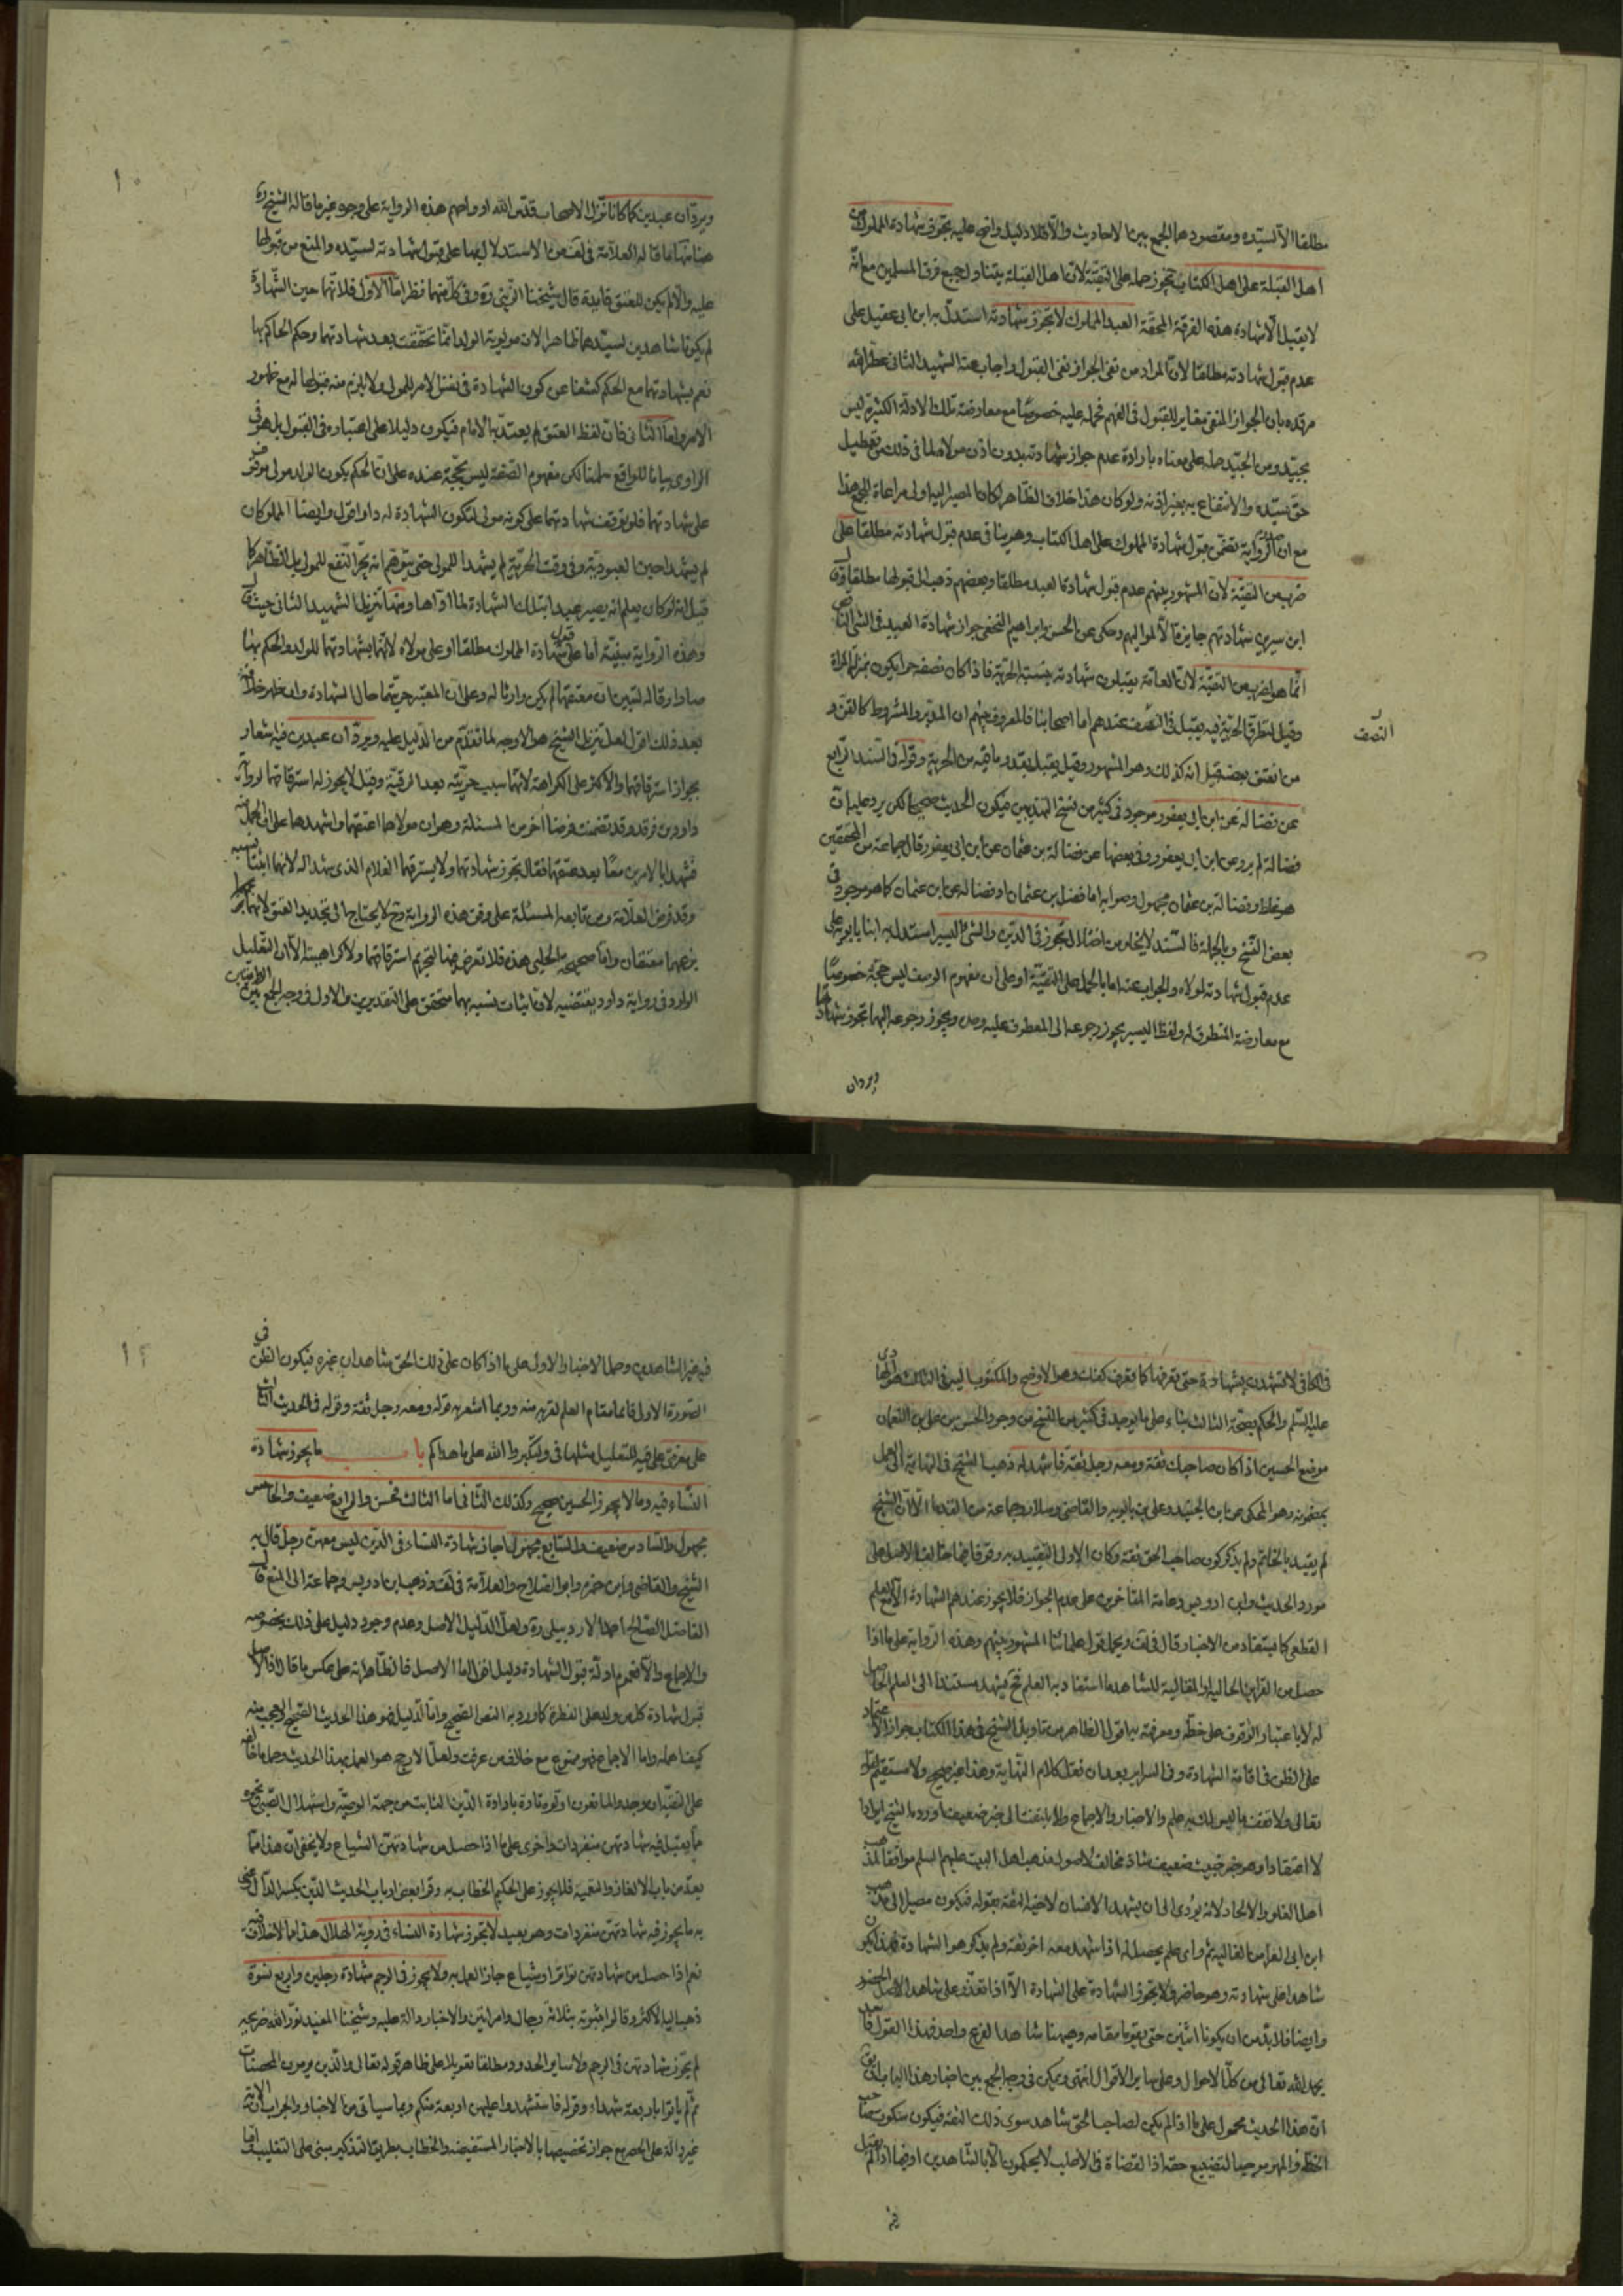 مطلقا الا لسيّده ومقصودهما الجمع بين الاحاديث والا فلا دليل واضح عليه يجوز شهادة المملوك من
اهل القبلة على اهل الكتاب يجوز حمله على التقيّة لانّ اهل القبلة يتناول جميع فرق المسلمين مع انّه
لا يقبل الّا شهادة هذه الفرقة المحقّة العبد المملوك لا يجوز شهادته استدلّ به ابن ابى عقيل على
عدم قبول شهادته مطلقا لانّ المراد من نفى الجواز نفى القبول واجاب عنه الشهيد الثانى عطّر الله
مرقده بان الجواز المنفى مغاير للقبول فى الفهم فحمله عليه خصوصًا مع معارضة تلك الادلّة الكثيرة ليس
بجيّد ومن الجيّد حمله على معناه بارادة عدم جواز شهادته بدون اذن مولاه لما فى ذلك من تعطيل
حق سيّده والانتفاع به بغير اذنه ولو كان هذا خلاف الظاهر لكان المصير اليه اولى مراعاة للجمع هذا
مع ان الرواية تقتضى قبول شهادة المملوك على اهل الكتاب وهو ينافى عدم قبول شهادته مطلقا على
ضرب من التقيّة لانّ المشهور بينهم عدم قبول شهادة العبد مطلقا وبعضهم ذهب الى قبولها مطلقا
ابن سيرين شهادتهم جايزة الّا لمواليهم وحكى عن الحسن وابراهيم النخعى جواز شهادة العبيد فى الشئ
انّما هو لضرب من التقيّة لانّ العامّة يقبلون شهادته بنسبة الحريّة فاذا كان نصفه حرا يكون بمنزلة المراة
وقيل لتطرّق الحرّية فيه يقبل فى النصف عندهم اما اصحابنا فالمعروف بينهم ان المدبّر والمشروط كالقن و
النصف
من انعتق بعضه قيل انه كذلك وهو المشهور وقيل يقبل بقدر ما فيه من الحرية وقوله فى السند الرابع
عن فضالة عن ابن ابى يعفور موجود فى كثير من نسخ التهذيبين فيكون الحديث صحيحا لكن يرد عليه ان
فضالة لم يرو عن ابن ابى يعفور وفى بعضها عن فضالة بن عثمان عن ابن ابى يعفور قال جماعة من المحققين
هو غلط وفضالة بن عثمان مجهول وصوابه اما فضل بن عثمان او فضالة عن ابن عثمان كما هو موجود فى
بعض النسخ وبالجملة فالسند لا يخلو من اختلال تجوز فى الدين والشئ اليسير استدل به ابنا بابويه على
عدم قبول شهادته لمولاه والجواب عنه اما بالحمل على التقيّة او على ان مفهوم الوصف ليس حجّة خصوصًا
مع معارضة المنطوق له ولفظ اليسير يجوز رجوعه الى المعطوف عليه وحده ويجوز رجوعه اليهما تجوز شهادتهما
ويردّان
ويردّان عبدين كما كانا نزّل الاصحاب قدّس الله ارواحهم هذه الرواية على وجوه غير ما قاله الشيخ ره
هنا منها ما قاله العلّامة فى لف من الاستدلال بها على قبول شهادته لسيّده والمنع من قبولها
عليه والّا لم يكن للعتق فايدة قال شيخنا الثّانى ره وفى كلّ منهما نظر امّا الاوّل فلانّهما حين الشّهادة
لم يكونا شاهدين لسيّدهما ظاهرا لان مولويّة الولد انّما تحقّقت بعد شهادتهما وحكم الحاكم بها
نعم شهادتهما مع الحكم كشفنا عن كون الشهادة فى نفس الامر للمولى ولا يلزم منه قبولها له مع ظهور
الامر وامّا الثّانى فانّ لفظ العتق لم يعتدّ به الامام فيكون دليلا على اعتباره فى القبول بل هو فى
الراوى بيانا للواقع سلمنا لكن مفهوم الصّفة ليس بحجّة عنده على انّ الحكم بكون الولد مولى موقوف
على شهادتهما فلو توقفت شهادتهما على كونه مولى لتكون الشهادة له دار اقول وايضا المملوكان
لم يشهدا حين العبوديّة وفى وقت الحريّة لم يشهدا للمولى حتى يتوهّم انه يجرّ النّفع للمولى بل الظّاهر كما
قيل انه لو كان يعلم انه يصير عبدا بتلك الشهادة لما ادّاها ومنها تنزيل الشهيد الثانى حيث قال
وهذه الرّواية مبنيّة اما على قبول شهادة المملوك مطلقا او على مولاه لانّهما بشهادتهما للولد والحكم بها
صارا رقا له لتبين انّ معتقهما لم يكن وارثا له وعلى انّ المعتبر حريّتهما حال الشهادة وان ظهر خلافه
بعد ذلك اقول لعل تنزيل الشيخ هو الاوجه لما تقدّم من الدّليل عليه ويردّان عبدين فيه اشعار
بجواز استرقاقهما والاكثر على الكراهة لانّهما سبب حرّيته بعد الرقيّة وقيل لا يجوز له استرقاقهما لرواية
داود بن فرقد وقد تضمنت فرضا اخر من المسئلة وهو ان مولاهما اعتقهما واشهدهما على انّ الحمل منه
فشهدا بالامرين معًا بعد عتقهما فقال يجوز شهادتهما ولا يسترقهما الغلام الذى شهدا له لانهما اثبتا نسبه
وقد فرض العلّامة ومن تابعه المسئلة على وفق هذه الرواية وح لا يحتاج الى تجديد العتق لانهما
بزعمهما معتقان وامّا صحيحه الحلبى هذه فلا تعرض فيها لتحريم استرقاقهما ولا كراهيته الّا ان التعليل
الوارد فى رواية داود يقتضيه لانّ اثبات نسبه بهما متحقق على التقديرين والاول فى وجه الجمع بين
فى الكافى لا تشهدن بشهادة حتى تعرفها كما تعرف كفّك وهو الاوضح والمكتوب اليه فى الثالث هو الهادى
عليه السّلم والحكم بصحّة الثالث بناء على ما يوجد فى كثير من النسخ من وجود الحسن بن على بن النعمان
موضع الحسين اذا كان صاحبك ثقة ومعه رجل ثقة فاشهد له ذهب الشيخ فى النهاية الى العمل
بمضمونه وهو المحكى عن ابن الجنيد وعلى بن بابويه والقاضى وسلار وجماعة من القدماء الّا انّ الشيخ
لم يقيد بالخاتم ولم يذكر كون صاحب الحق ثقة وكان الاولى التقييد به وقوفا فيما خالف الاصل على
مورد الحديث وابن ادريس وعامة المتاخرين على عدم الجواز فلا يجوز عندهم الشهادة الّا مع العلم
القطعى كما يستفاد من الاخبار قال فى لف ويحمل قول علمائنا المشهور بينهم وهذه الرّواية على ما اذا
حصل من القراين الحالية والمقالية للشاهد ما استفاد به العلم فح يشهد مستندا الى العلم الحاصل
له لا باعتبار الوقوف على خطّه ومعرفته به اقول الظاهر من تاويل الشيخ فى هذا الكتاب جواز الاعتماد
على الظن فى اقامة الشهادة وفى السراير بعد ان نقل كلام النّهاية وهذا غير صحيح ولا مستقيم
تعالى ولا تقف ما ليس لك به علم والاخبار والاجماع ولا يلتفت الى خبر ضعيف اورده الشيخ ايرادا
لا اعتقادا وهو خبر خبيث ضعيف شاذ مخالف لاصول مذهب اهل البيت عليهم السلم موافقا لمذهب
اهل الغلو والالحاد لانه يؤدى الى ان يشهد الانسان لاخيه الثقة بقوله فيكون مصيرا الى مذهب
ابن ابى العزاقر الغالى ثم واى علم يحصل له اذا شهد معه اخر ثقة ولم يذكر هو الشهادة
شاهدا على شهادته وهو حاضر ولا يجوز الشهادة على الشهادة الّا اذا تعذّر على شاهد الاصل الحضور
وايضا فلا بدّ من ان يكونا اثنين حتى يقوما مقامه وهيهنا شاهد الفرع واحد فهذا القول
بحمد الله تعالى من كلّ الاحوال وعلى ساير الاقوال انتهى ويمكن فى وجه الجمع بين اخبار هذا الباب
انّ هذا الحديث محمول على ما اذا لم يكن لصاحب الحقّ شاهد سوى ذلك الثقة فيكون سكوت صاحب
الخطّ والمهر موجبا لتضييع حقه اذ القضاة فى الاغلب لا يحكمون الّا بالشّاهدين او ايضا اذا لم يقبل
فيه غير الشاهدين وحمل الاخبار الاول على ما اذا كان على ذلك الحق شاهدان غيره فيكون الظنّ فى
الصّورة الاولى قائما مقام العلم لقربه منه وربما اشعر به قوله ومعه رجل ثقة وقوله فى الحديث
على معرفتى على فيه للتعليل مثلها فى ولتكبّروا الله على ما هداكم باب ما يجوز شهادة
النّساء فيه وما لا يجوز الحسين صحيح وكذلك الثّانى اما الثالث فحسن والرابع ضعيف والخامس
مجهول والسّادس ضعيف والسّابع مجهول اجاز شهادة النساء فى الدّين ليس معهنّ رجل قال به
الشيخ والقاضى وابن حمزه وابو الصّلاح والعلّامة فى لف وذهب ابن ادريس وجماعة الى المنع قال
الفاضل الصالح احمد الاردبيلى ره ولعلّ الدّليل الاصل وعدم وجود دليل على ذلك بخصوصه
والاجماع والّا فعموم ادلّة قبول الشهادة دليل اقول اما الاصل فالظّاهر انه على عكس ما قال اذ الاصل
قبول شهادة كل من ولد على الفطرة كما ورد به النصّ الصّحيح وامّا الدّليل فهو هذا الحديث الصّحيح والعجب منه
كيف اهمله واما الاجماع فهو ممنوع مع خلاف من عرفت ولعلّ الارجح هو العمل بهذا الحديث وحمل ما خالفه
على التقيّة ان وجد والمانعون اوّلوه تارة بارادة الدّين الثابت من جهة الوصيّة واستهلال الصّبى ونحوه
ممّا يقبل فيه شهادتهن منفردات واخرى على ما اذا حصل من شهادتهنّ الشياع ولا يخفى انّ هذا ممّا
يعدّ من باب الالغاز والتعمية فلا يجوز على الحكيم الخطاب به وقرا بعض ارباب الحديث الدّين بكسر الدّال
به ما يجوز فيه شهادتهنّ منفردات وهو بعيد لا تجوز شهادة النساء فى رؤية الهلال هذا مما لا خلاف فيه
نعم اذا حصل من شهادتهن تواترا وشياع جاز العمل به ولا يجوز فى الرجم شهادة رجلين واربع نسوة
ذهب اليه الاكثر وقالوا بثبوته بثلاثة رجال وامراتين والاخبار دالة عليه وشيخنا المفيد نوّر الله ضريحه
لم يجوّز شهادتهن فى الرجم ولا ساير الحدود مطلقا تعويلا على ظاهر قوله تعالى والّذين يرمون المحصنات
ثم لم ياتوا باربعة شهداء وقوله فاستشهدوا عليهن اربعة منكم وبما سياتى من الاخبار والجواب انّ الاية
غير دالّة على الحصر مع جواز تخصيصها بالاخبار المستفيضه والخطاب بطريق التذكير مبنى على التغليب